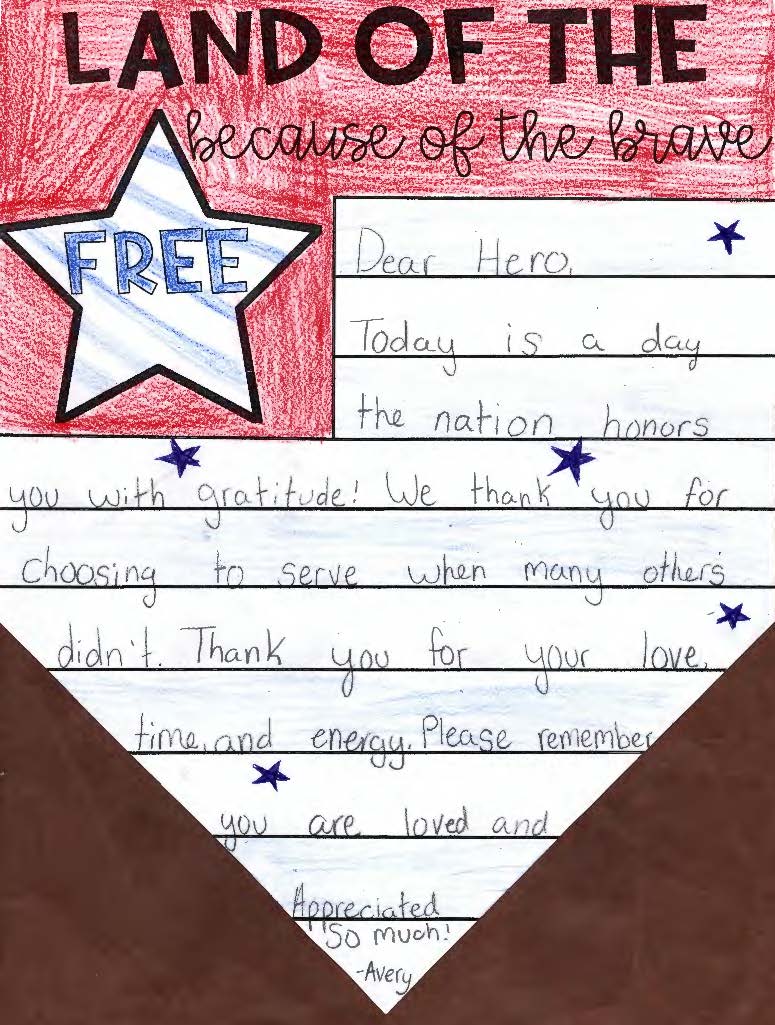 LAND OF THE
because of the brave
FREE
Dear Hero,
Today is a day
the nation honors
you with gratitude! We thank you for
choosing to serve when many others
didn't. Thank you for your love,
time, and energy. Please remember
you are loved and
Appreciated
so much!
-Avery